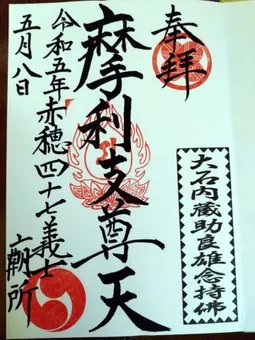 奉拝
大石内蔵助良雄念持佛
摩利支尊天
赤穂四十七義士
廟所
令和五年
五月八日